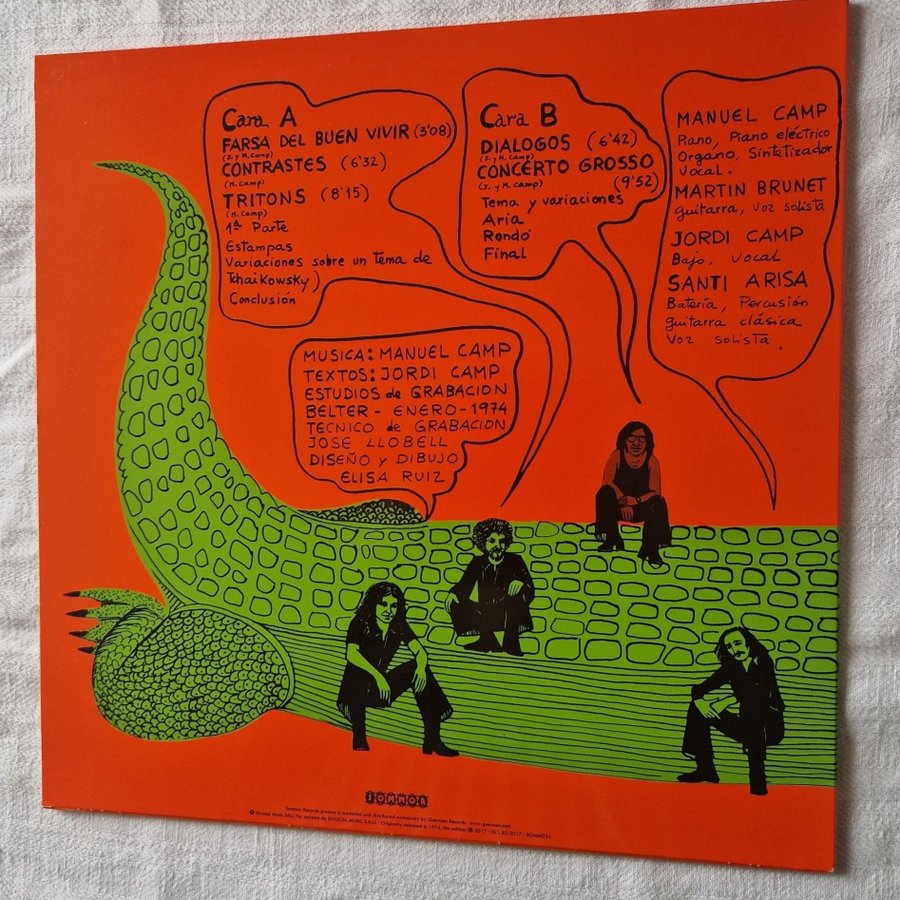 Cara A
FARSA DEL BUEN VIVIR (3'08)
(J. y M. Camp)
CONTRASTES (6'32)
(M. Camp)
TRITONS (8'15)
(M. Camp)
1ª Parte
Estampas
Variaciones sobre un tema de
Tchaikowsky)
Conclusión
Cara B
DIALOGOS (6'42)
(J. y M. Camp)
CONCERTO GROSSO
(J. y M. Camp)
(9'52)
Tema y variaciones
Aria
Rondó
Final
MANUEL CAMP
Piano, Piano eléctrico
Organo, Sintetizador
Vocal.
MARTIN BRUNET
guitarra, voz solista
JORDI CAMP
Bajo, vocal
SANTI ARISA
Batería, Percusión
guitarra clásica
Voz solista.
MUSICA: MANUEL CAMP
TEXTOS: JORDI CAMP
ESTUDIOS de GRABACION
BELTER - ENERO - 1974
TECNICO de GRABACION
JOSE LLOBELL
DISEÑO y DIBUJO
ELISA RUIZ
SOMMOR
Sommor Records product is marketed and distributed exclusively by Guerssen Records - www.guerssen.com
Originally released in 1974, this edition 2017